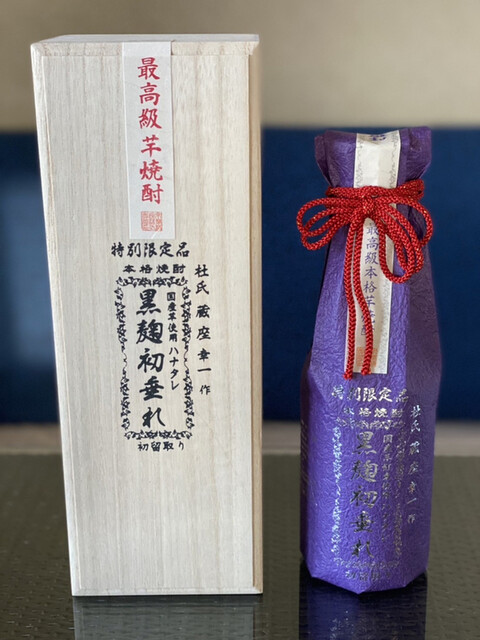 最高級芋焼酎
特別限定品
本格焼酎
杜氏 蔵座幸一作
国産芋使用ハナタレ
黒麹初垂れ
初留取り
最高級本格芋焼酎
特別限定品
本格焼酎
杜氏 蔵座幸一作
国産芋使用ハナタレ
黒麹初垂れ